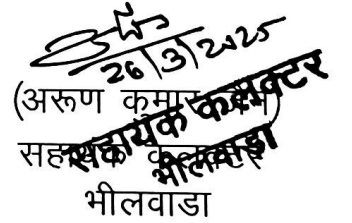 26/3/2025
(अरूण कुमार जैन)
सहायक कलक्टर
भीलवाड़ा
सहायक कलक्टर
भीलवाडा